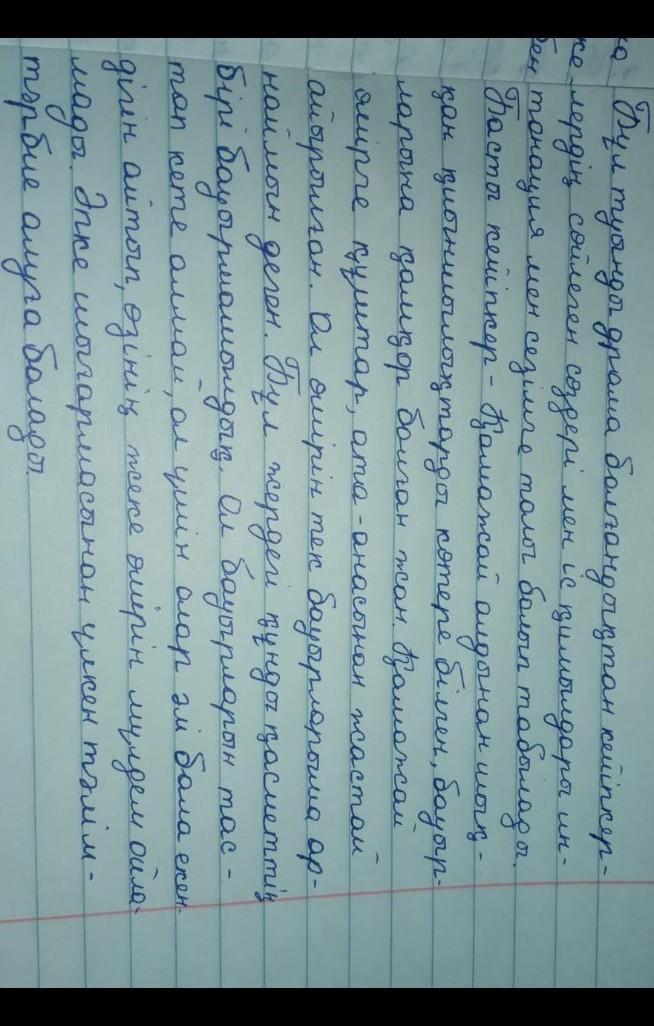 Бұл туынды драма болғандықтан кейіпкер-
лердің сөйлеген сөздері мен іс қимылдары ин-
тонация мен сезімге толы болып табылады.
Басты кейіпкер - Қамажай алдынан шық-
қан қиыншылықтарды көтере білген, бауыр-
ларына қамқор болған жан. Қамажай
өмірге құштар, ата-анасынан жастай
айрылған. Ол өмірін тек бауырларыма ар-
наймын деген. Бұл жердегі құнды қасиеттің
бірі бауырмашылдық. Ол бауырларын тас-
тап кете алмай, ол үшін олар әлі бала екен-
дігін айтып, өзінің жеке өмірін мүлдем ойла-
мады. Әпке шығармасынан үлкен тәлім-
тәрбие алуға болады.